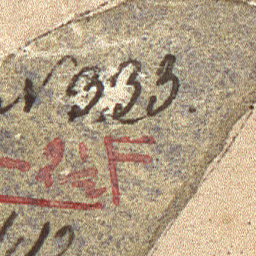 N 333.
- 2½ F